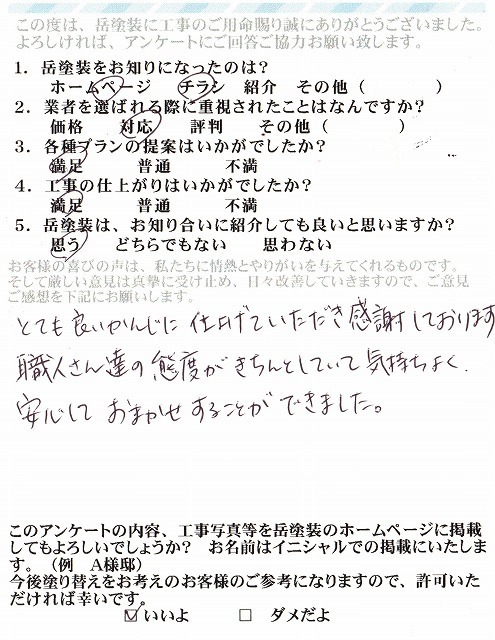 この度は、岳塗装に工事のご用命賜り誠にありがとうございました。
よろしければ、アンケートにご回答ご協力お願い致します。
1．岳塗装をお知りになったのは？
ホームページ　チラシ　紹介　その他（　　　　）
2．業者を選ばれる際に重視されたことはなんですか？
価格　対応　評判　その他（　　　　）
3．各種プランの提案はいかがでしたか？
満足　普通　不満
4．工事の仕上がりはいかがでしたか？
満足　普通　不満
5．岳塗装は、お知り合いに紹介しても良いと思いますか？
思う　どちらでもない　思わない
お客様の喜びの声は、私たちに情熱とやりがいを与えてくれるものです。
そして厳しい意見は真摯に受け止め、日々改善していきますので、ご意見
ご感想を下記にお願いします。
とても良いかんじに仕上げていただき感謝しております
職人さん達の態度がきちんとしていて気持ちよく、
安心しておまかせすることができました。
このアンケートの内容、工事写真等を岳塗装のホームページに掲載
してもよろしいでしょうか？　お名前はイニシャルでの掲載にいたしま
す。（例　A様邸）
今後塗り替えをお考えのお客様のご参考になりますので、許可いた
だければ幸いです。
☑いいよ　□　ダメだよ